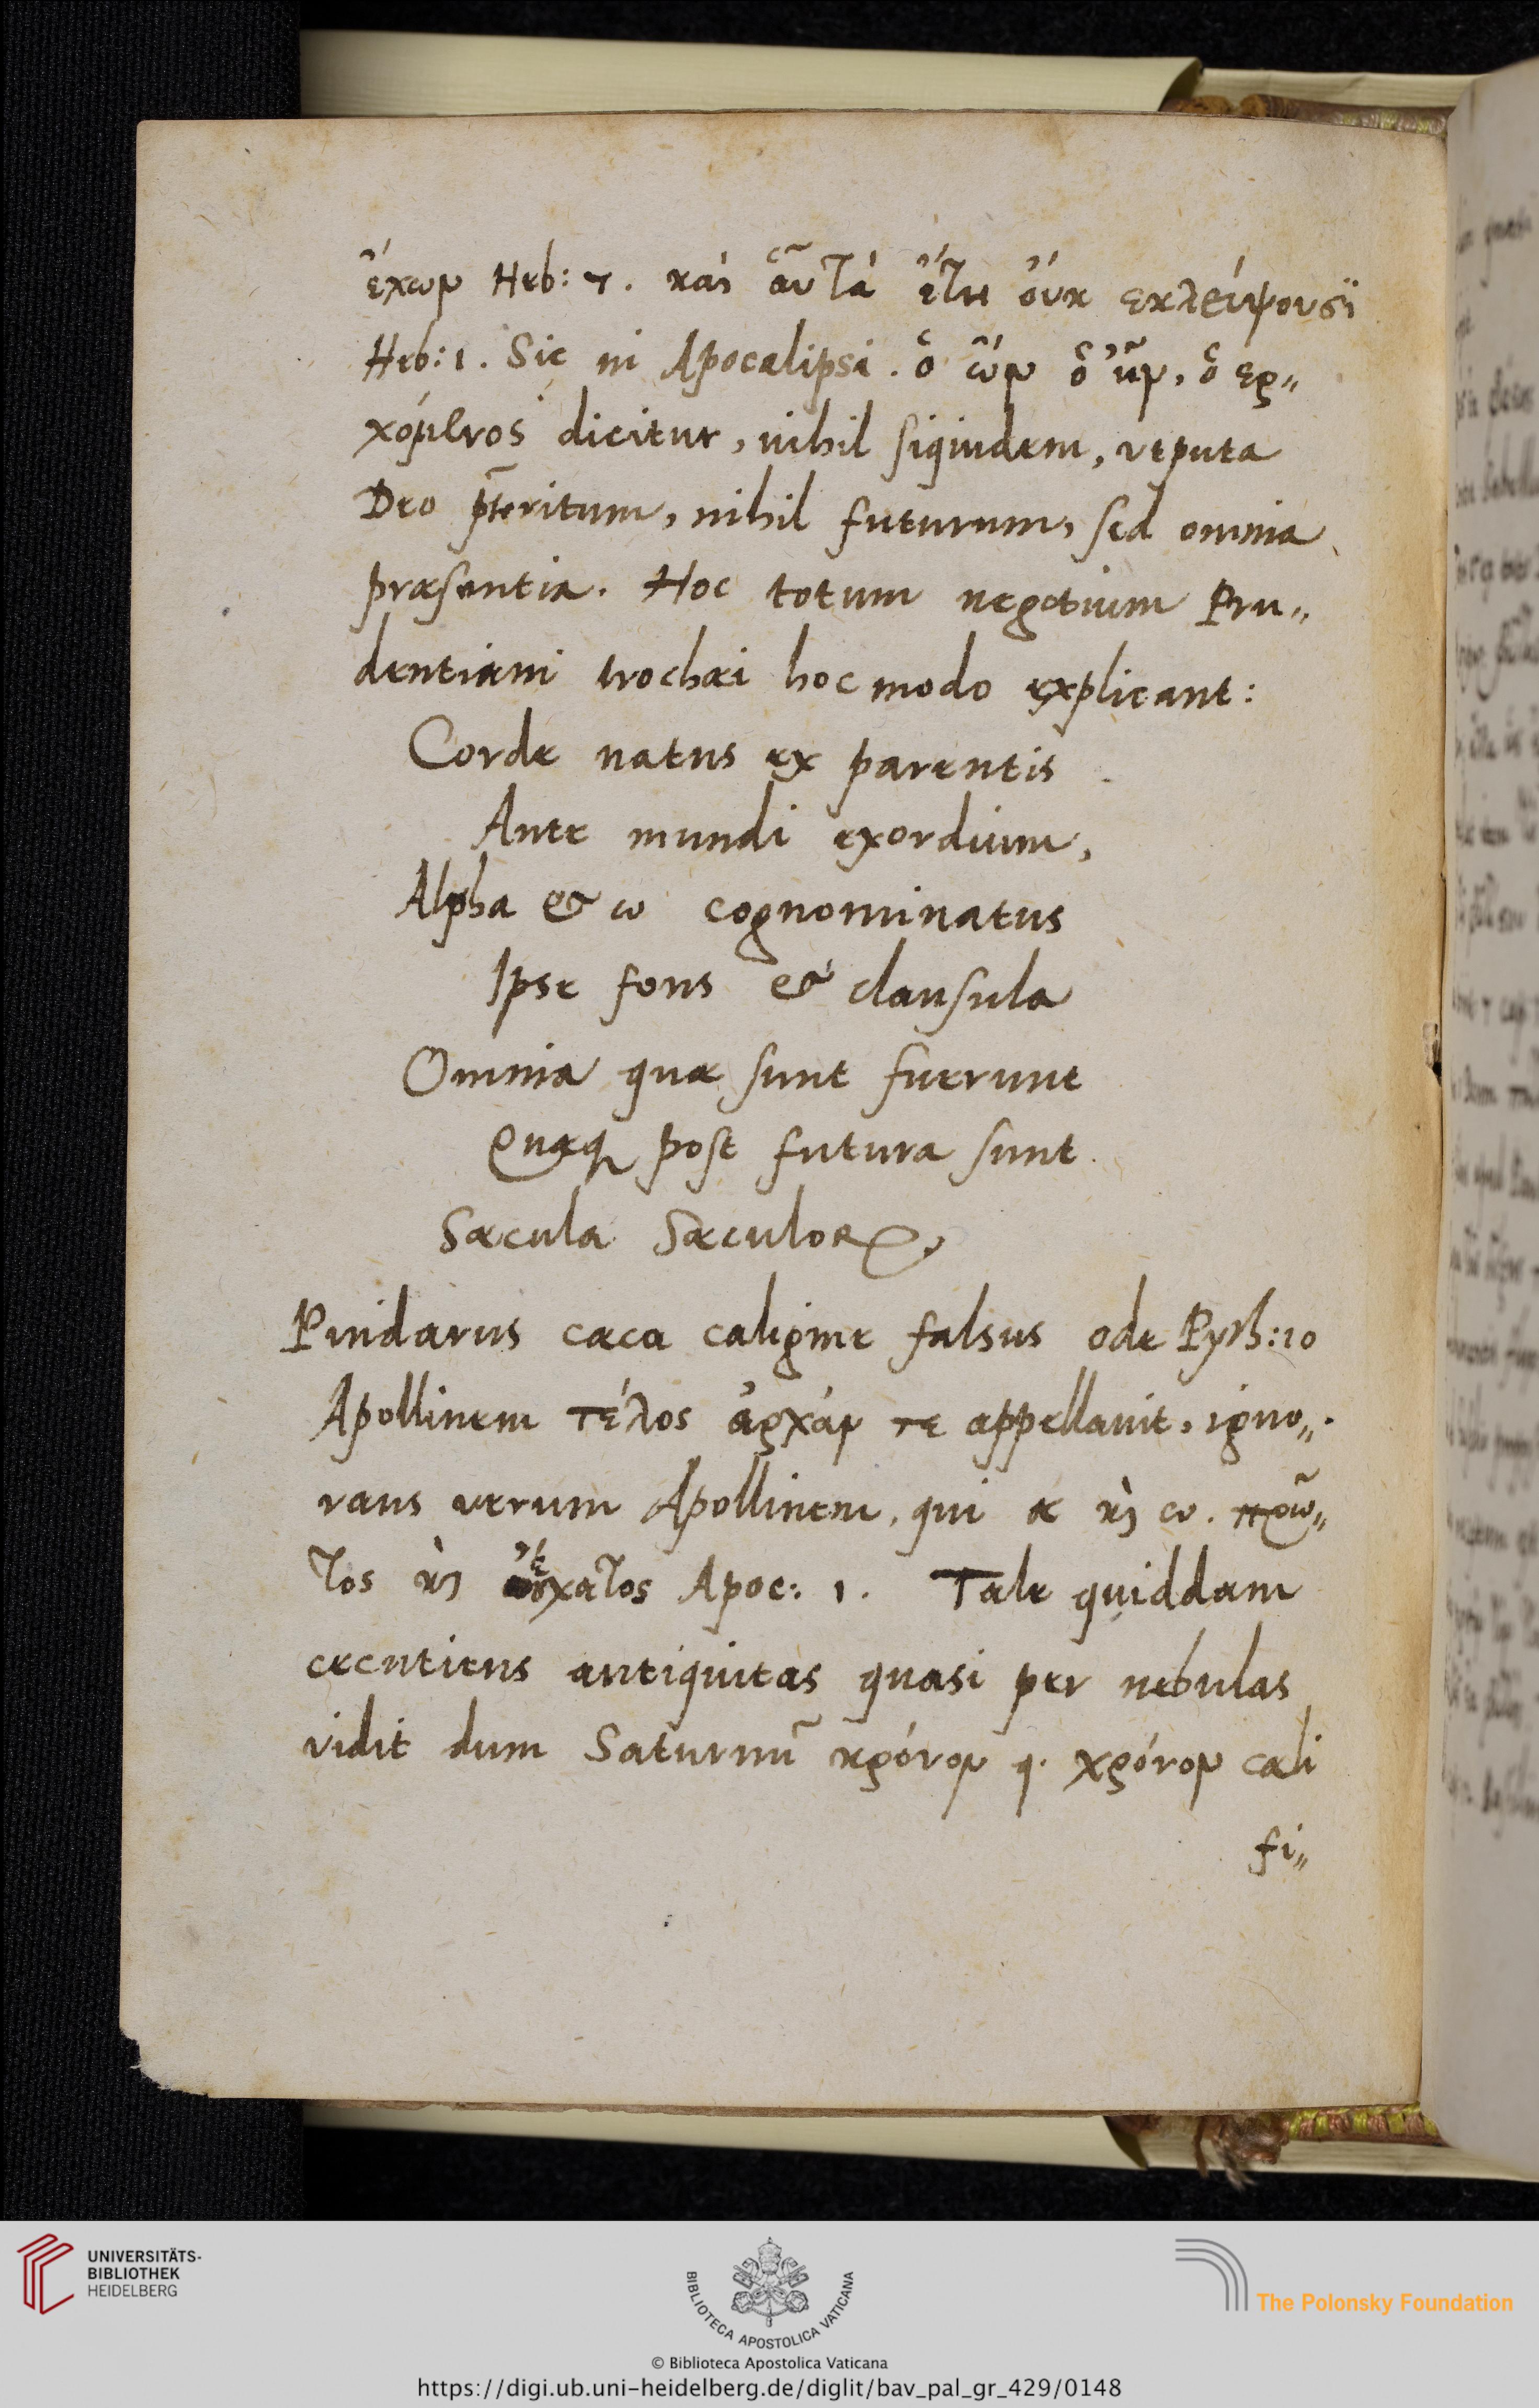 ἔχων Heb: 7. καὶ αὐτὰ ἔτη οὐκ εκλείψουσϊ
Heb: 1. Sic in Apocalipsi. ὁ ὢν ὁ ἦν, ὁ ερ„
χόμενος dicitur, nihil siquidem, utputa
Deo p̃teritum, nihil futurum, sed omnia
præsentia. Hoc totum negotium Pru„
dentiani trochæi hoc modo explicant:
Corde natus ex parentis
Ante mundi exordium,
Alpha & ω cognominatus
Ipse fons & clausula
Omnia quæ sunt fuerunt
Quæq post futura sunt.
Sæcula Sæculoꝝ.
Pindarus cæca caligine falsus ode Pyth: 10
Apollinem τέλος ἀρχάν τε appellauit, igno„
rans verum Apollinem, qui α κὶ ω. πρῶ„
τος κὶ ἔσχατος Apoc: 1. Tale quiddam
cecutiens antiquitas quasi per nebulas
vidit dum Saturnũ κρόνον q. χρόνον cæli
fi„
UNIVERSITÄTS-
BIBLIOTHEK
HEIDELBERG
BIBLIOTECA APOSTOLICA VATICANA
The Polonsky Foundation
© Biblioteca Apostolica Vaticana
https://digi.ub.uni-heidelberg.de/diglit/bav_pal_gr_429/0148